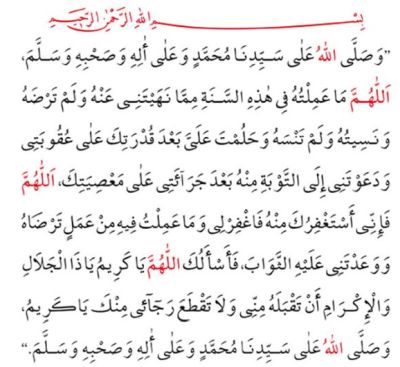 بِسْمِ اللهِ الرَّحْمٰنِ الرَّحِيْمِ
"وَصَلَّى اللهُ عَلٰى سَيِّدِنَا مُحَمَّدٍ وَعَلٰى أٰلِهِ وَصَحْبِهِ وَسَلَّمَ،
اَللّٰهُمَّ مَا عَمِلْتُهُ فِى هٰذِهِ السَّنَةِ مِمَّا نَهَيْتَنِى عَنْهُ وَلَمْ تَرْضَهُ
وَنَسِيتُهُ وَلَمْ تَنْسَهُ وَحَلُمْتَ عَلَىَّ بَعْدَ قُدْرَتِكَ عَلٰى عُقُوبَتِى
وَدَعَوْتَنِى إِلَى التَّوْبَةِ مِنْهُ بَعْدَ جَرَآئَتِى عَلٰى مَعْصِيَتِكَ، اَللّٰهُمَّ
فَإِنِّى أَسْتَغْفِرُكَ مِنْهُ فَاغْفِرْلِى وَمَا عَمِلْتُ فِيهِ مِنْ عَمَلٍ تَرْضَاهُ
وَوَعَدْتَنِى عَلَيْهِ الثَّوَابَ، فَأَسْأَلُكَ اللّٰهُمَّ يَا كَرِيمُ يَاذَا الْجَلَالِ
وَالْإِكْرَامِ أَنْ تَقْبَلَهُ مِنِّى وَلَا تَقْطَعَ رَجَآئِى مِنْكَ يَاكَرِيمُ،
وَصَلَّى اللهُ عَلٰى سَيِّدِنَا مُحَمَّدٍ وَعَلٰى أٰلِهِ وَصَحْبِهِ وَسَلَّمَ."